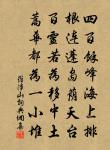 四百餘峰海上排
根連蓬島蔭天台
百靈若為移中土
嵩華都為一小堆
羅浮山 詞典網集